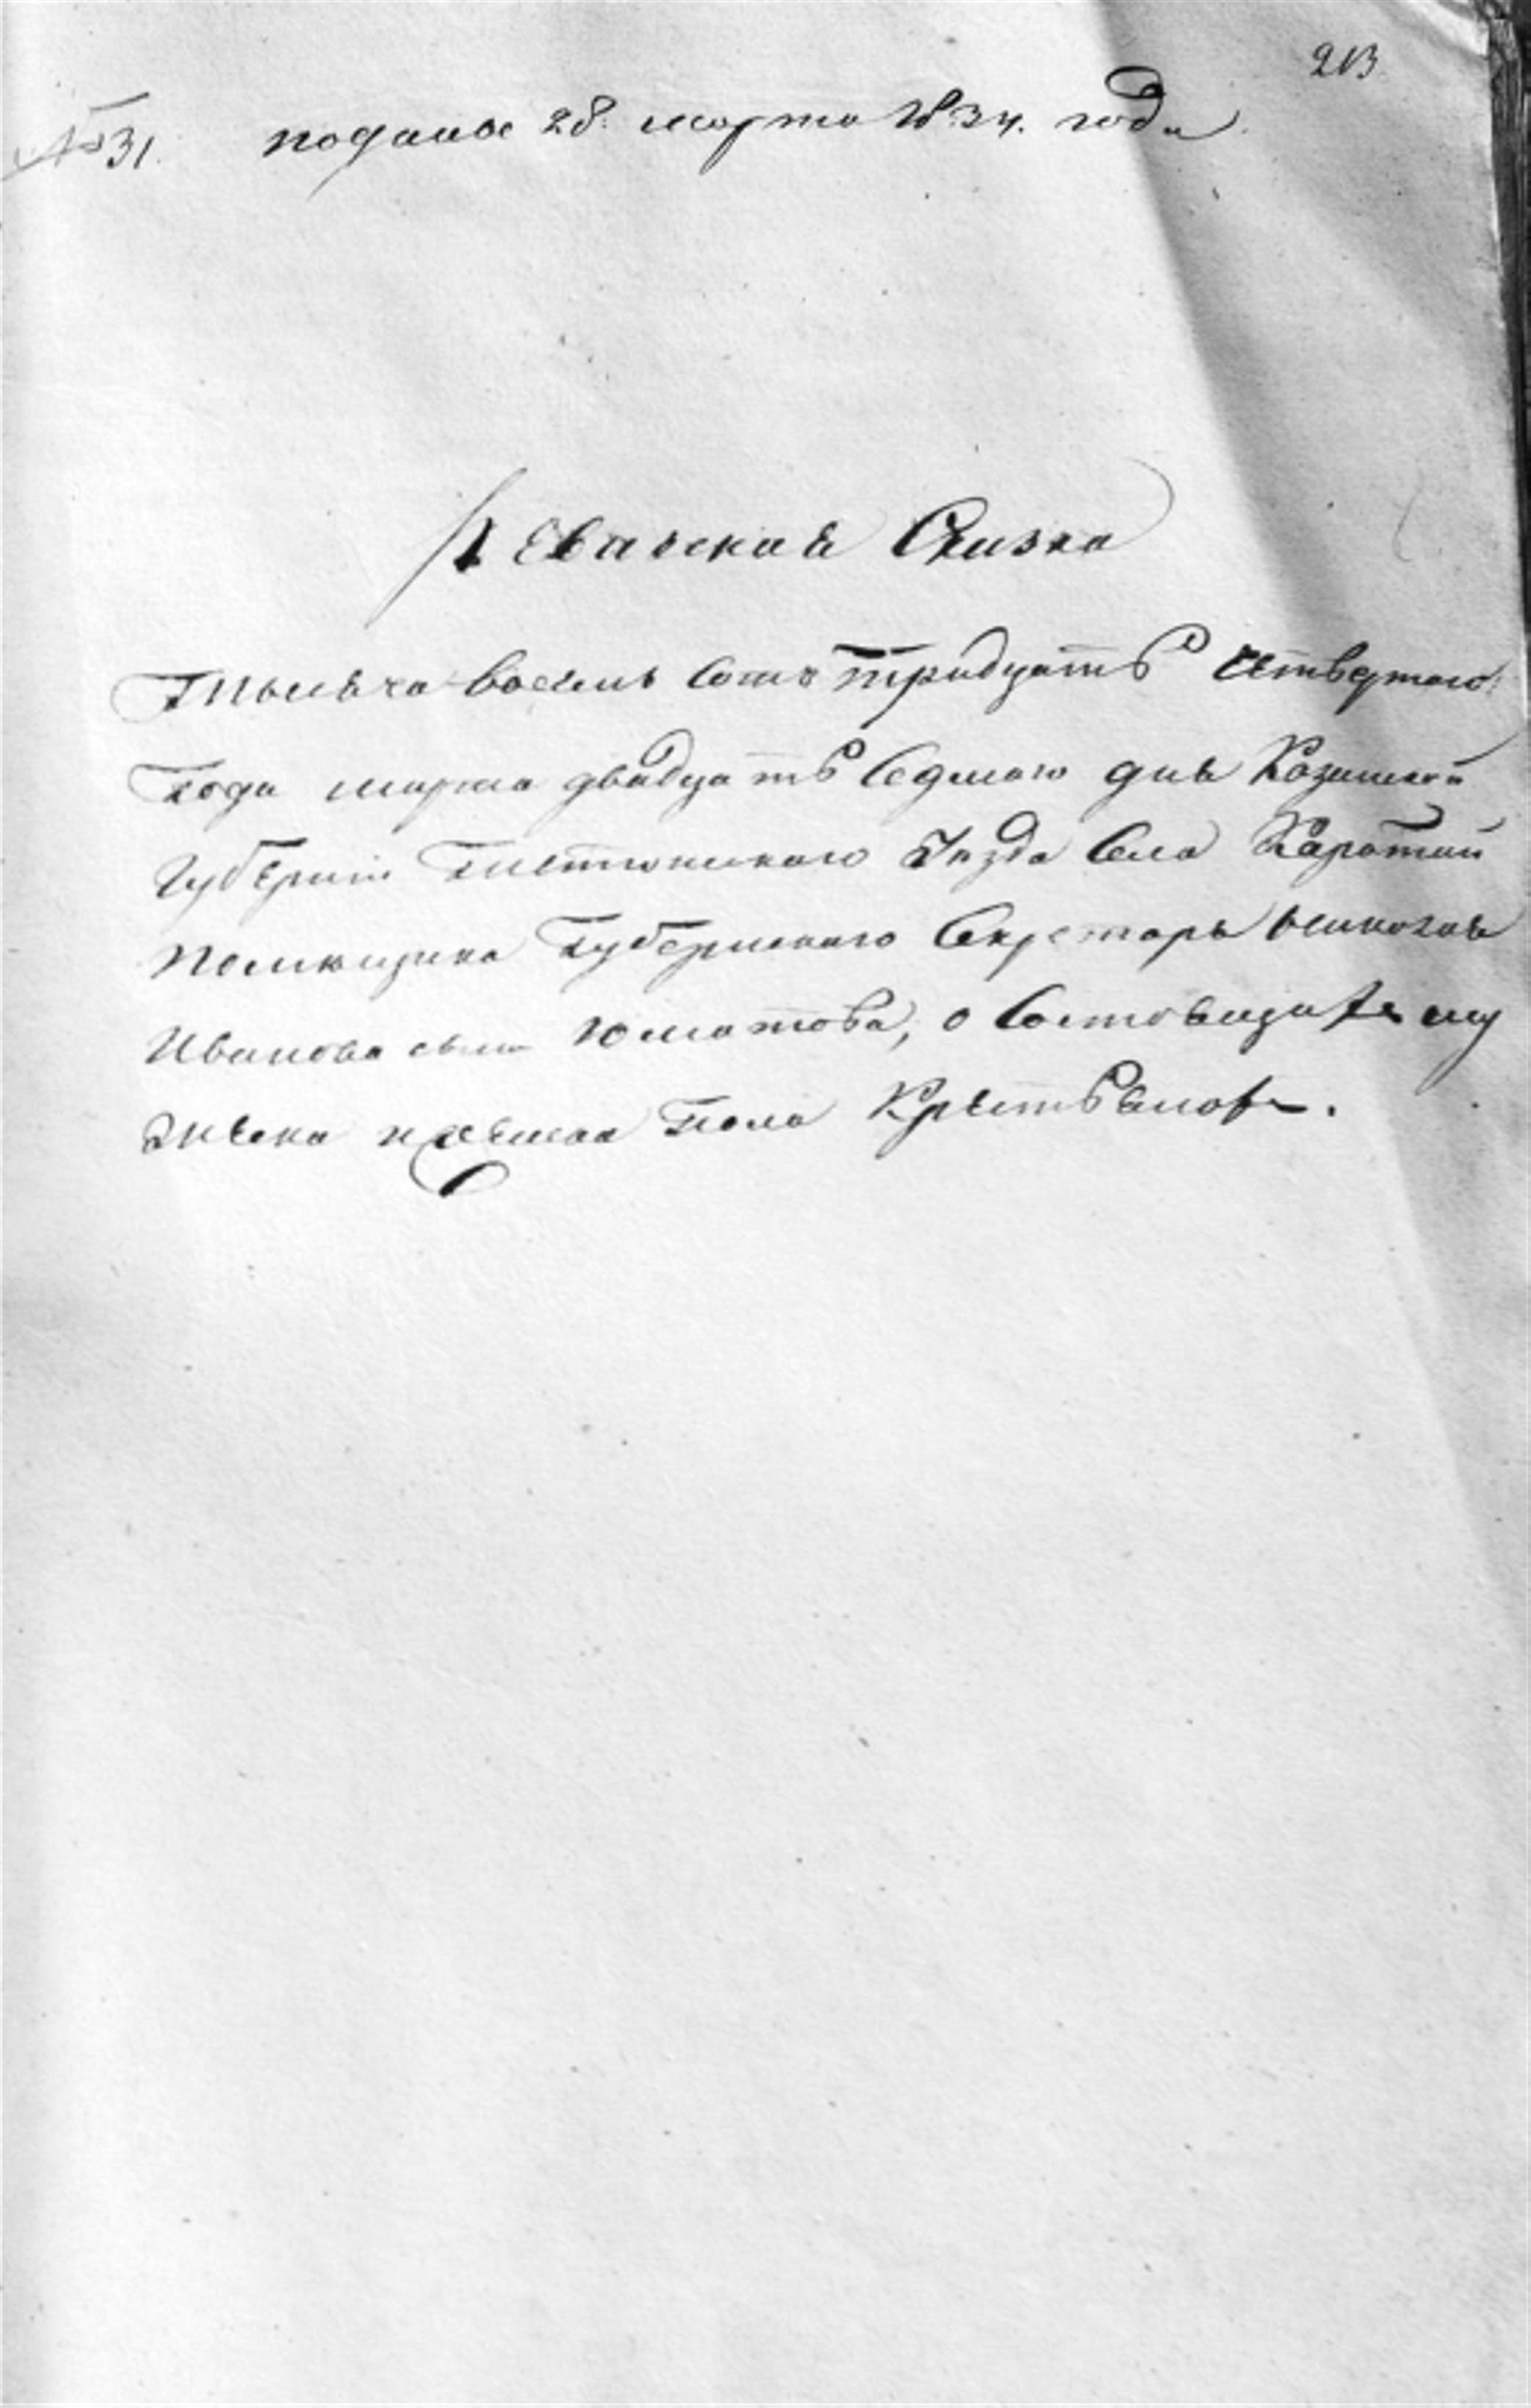 213
№ 31. подана 28: марта 1834. года
Ревизская Сказка
Тысяча восемь сотъ тридцать четвертаго
года марта двадцать седмаго дня Казанской
Губернiи Чистопольскаго Уезда Села
помещика Губернскаго Секретаря Николая
Иванова сына Юматова, о Состоящихъ
мужеска и женска пола Крестьянахъ.